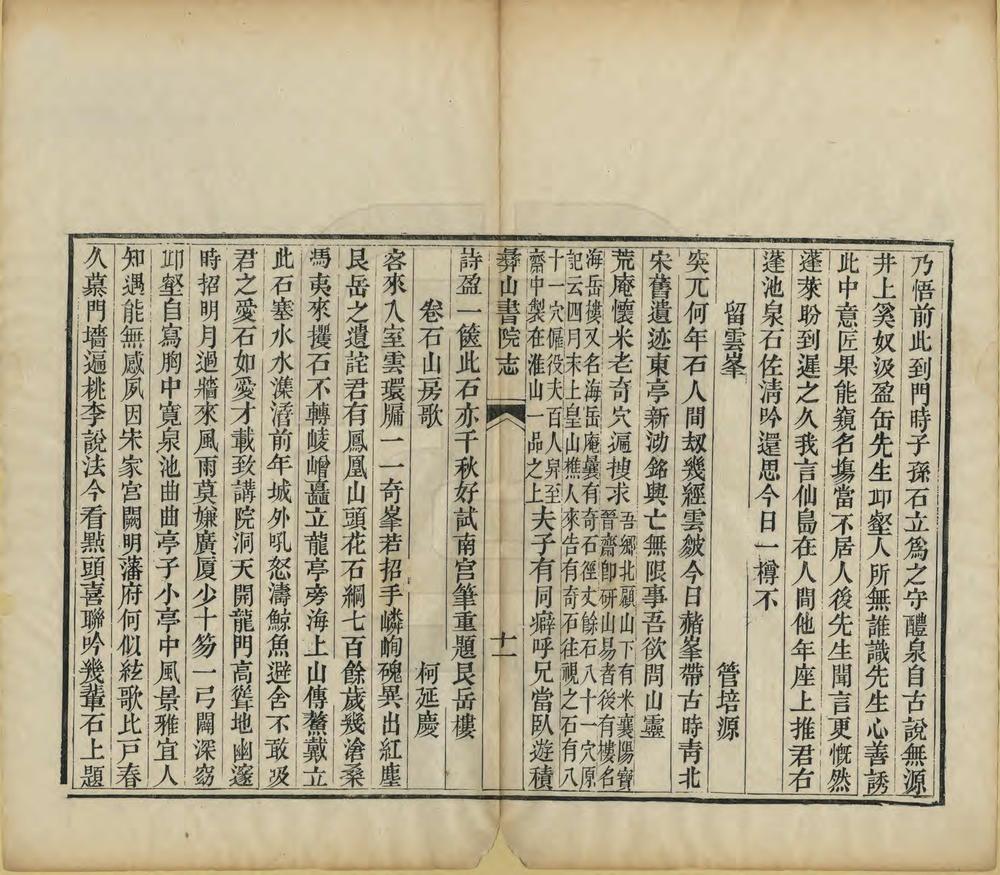 乃悟前此到門時子孫石立爲之守醴泉自古說無源
井上奚奴汲盈缶先生邱壑人所無誰識先生心善誘
此中意匠果能窺名塲當不居人後先生聞言更慨然
蓬萊盼到遲之久我言仙島在人間他年座上推君右
蓬池泉石佐淸吟還思今日一樽不
留雲峯　管培源
突兀何年石人間刼幾經雲皴今日赭峯帶古時靑北
宋舊遺迹東亭新泐銘興亡無限事吾欲問山靈
荒庵懷米老奇穴遍搜求吾鄉北顧山下有米襄陽寶
晉齋卽硏山易者後有樓名
海岳樓又名海岳庵曩有奇石徑丈餘石八十一穴原
記云四月末上皇山樵人來告有奇石往視之石有八
十一穴僱役夫百人舁至
齋中製在淮山一品之上夫子有同癖呼兄當臥遊積
彝山書院志　十一
詩盈一篋此石亦千秋好試南宮筆重題艮岳樓
卷石山房歌　柯延慶
客來入室雲環牖一一奇峯若招手嶙峋磈異出紅塵
艮岳之遺詫君有鳳凰山頭花石綱七百餘歲幾滄桑
馮夷來攫石不轉崚嶒矗立龍亭旁海上山傳鰲戴立
此石塞水水潗濳前年城外吼怒濤鯨魚避舍不敢吸
君之愛石如愛才載致講院洞天開龍門高聳地幽邃
時招明月過牆來風雨莫嫌廣厦少十笏一弓闢深窈
邱壑自寫胸中寬泉池曲曲亭子小亭中風景雅宜人
知遇能無感夙因宋家宮闕明藩府何似絃歌比戸春
久慕門墻遍桃李說法今看點頭喜聯吟幾輩石上題